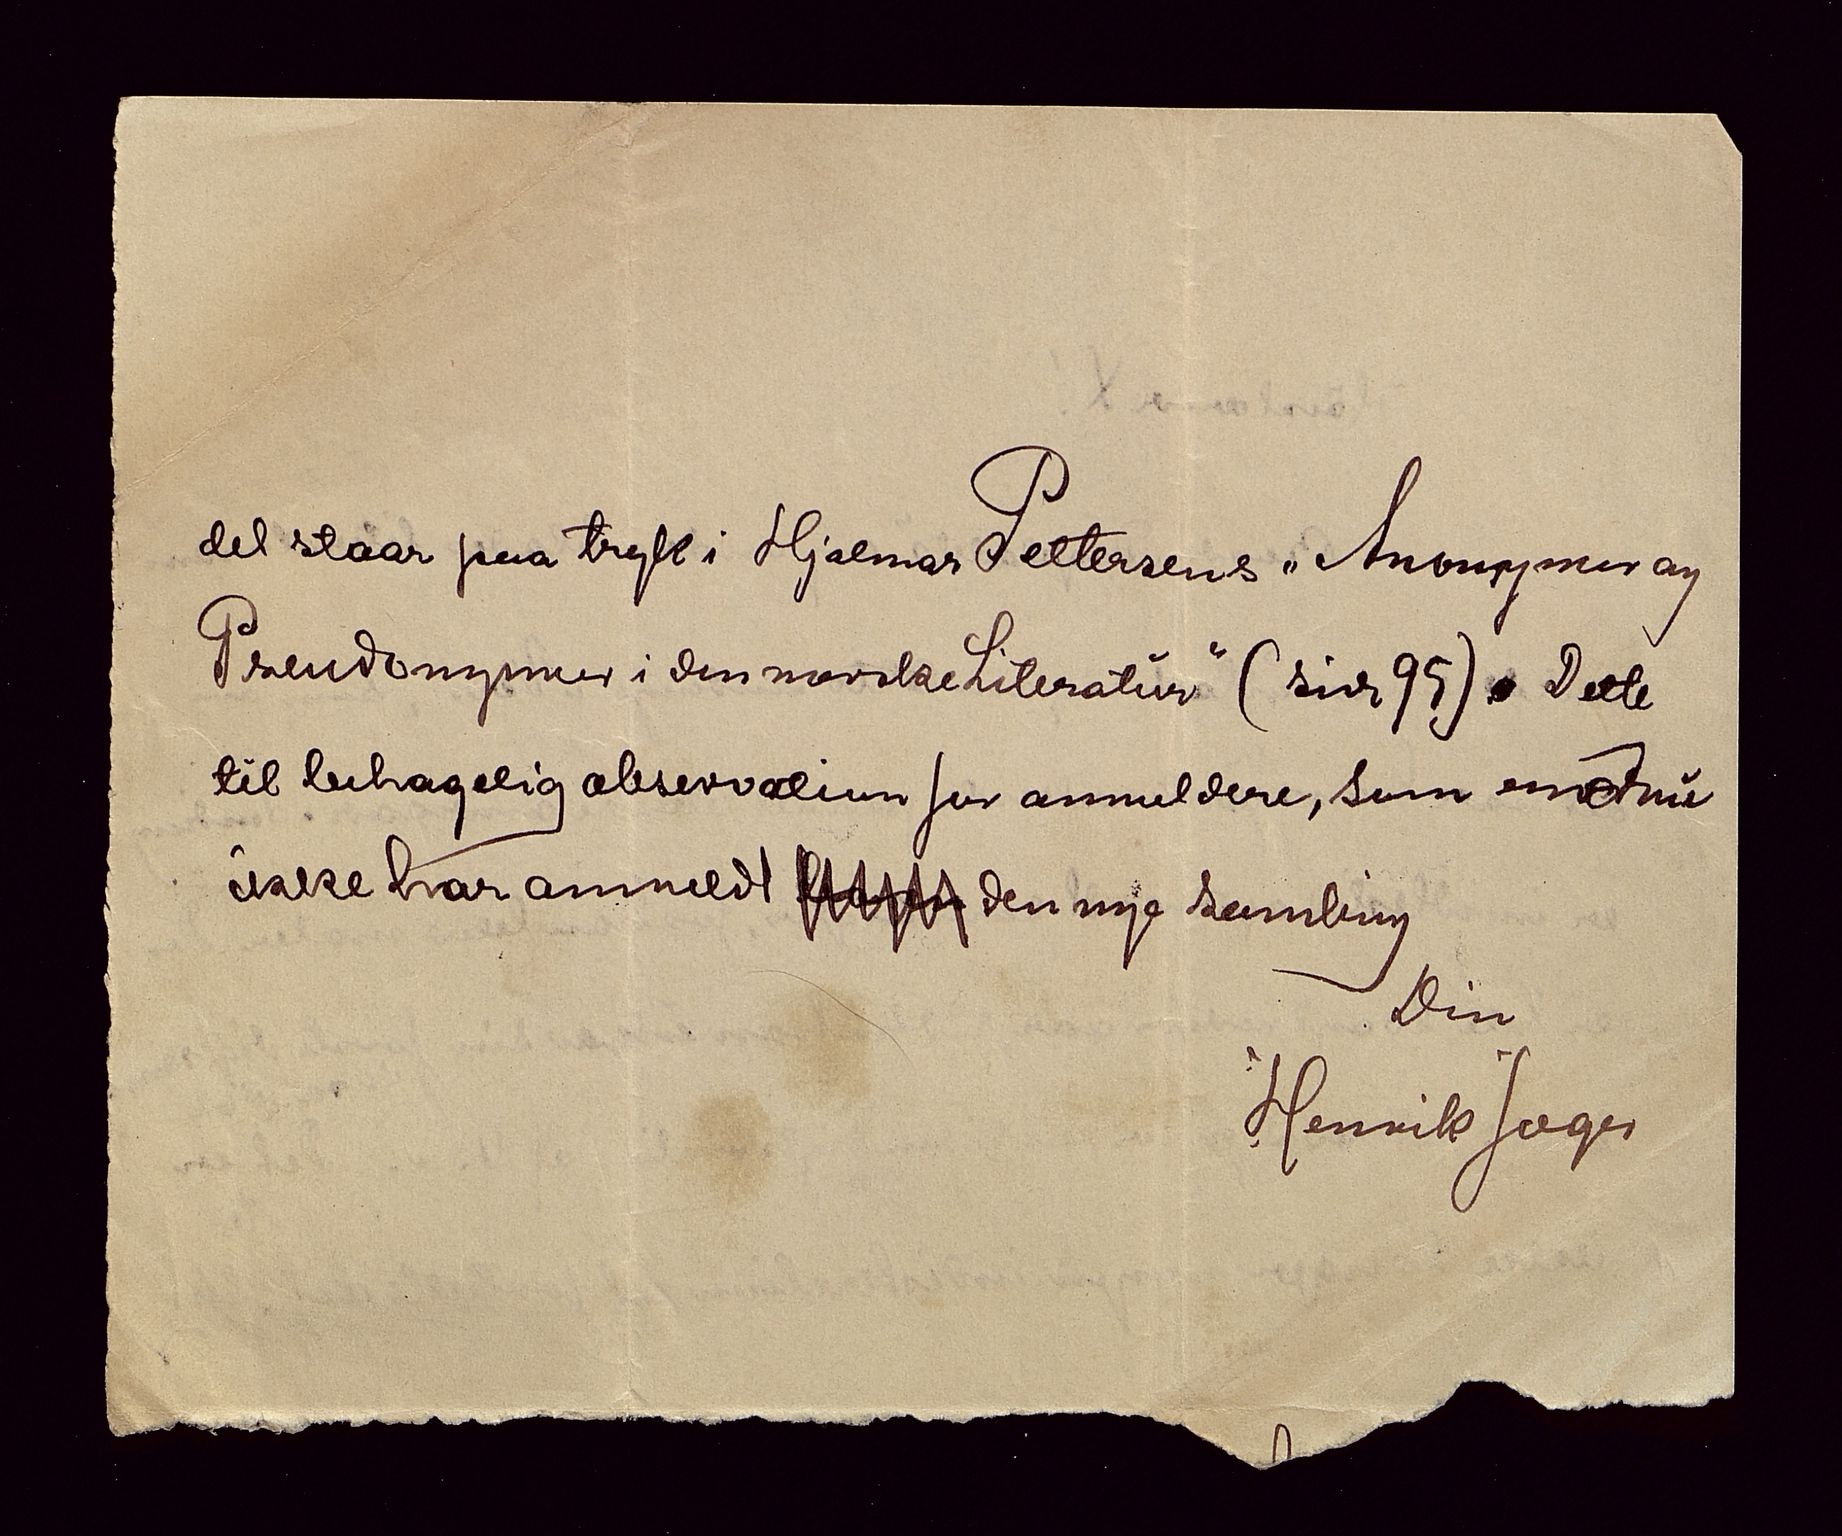 det staar paa tryk i Hjalmar Pettersens „Anonymer og
Pseudonymer i den norske Literatur“ (side 95). Dette
til behagelig observation for anmeldere, som endnu
ikke har anmeldt den nye samling
Din
Henrik Jæger